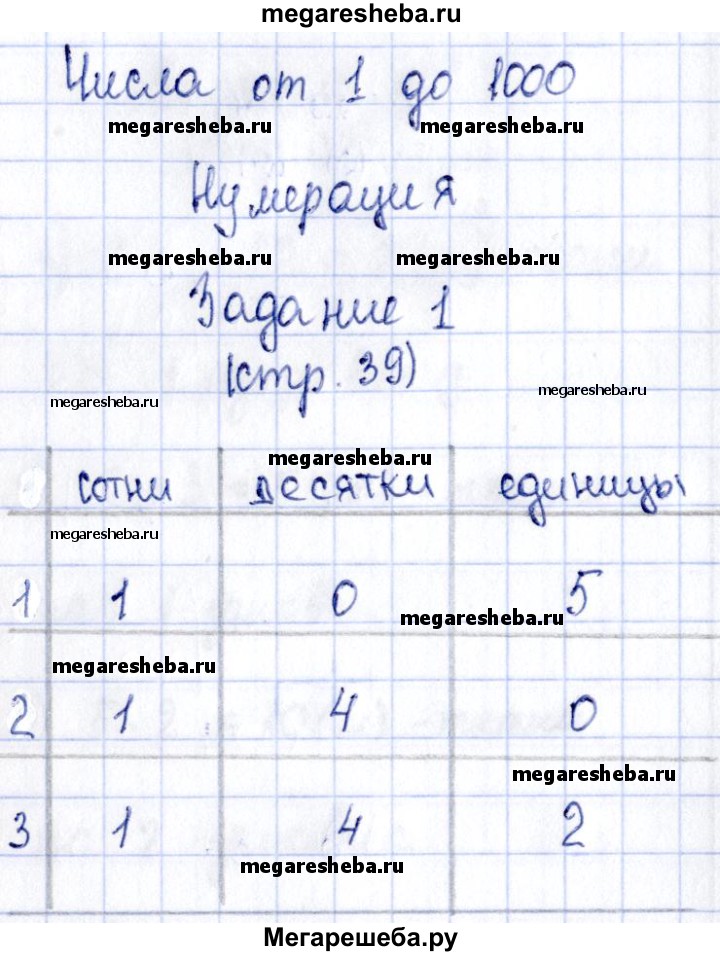 megaresheba.ru
Числа от 1 до 1000
megaresheba.ru megaresheba.ru
Нумерация
megaresheba.ru megaresheba.ru
Задание 1
(стр. 39)
megaresheba.ru megaresheba.ru
megaresheba.ru
сотни десятки единицы
megaresheba.ru
1 1 0 5
megaresheba.ru
megaresheba.ru
2 1 4 0
megaresheba.ru
3 1 4 2
megaresheba.ru
Мегарешеба.ру